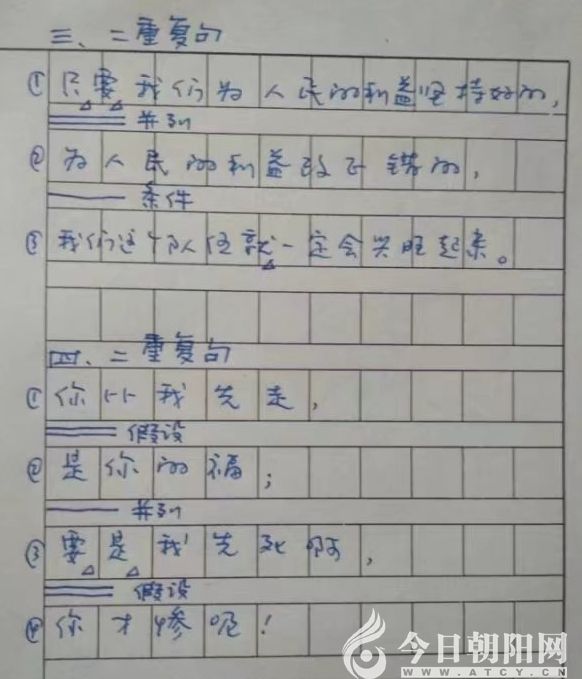 三、二重复句
①只要我们为人民的利益坚持好的，
并列
②为人民的利益改正错的，
条件
③我们这个队伍就一定会兴旺起来。
四、二重复句
①你比我先走，
假设
②是你的福；
并列
③要是我先死啊，
假设
④你才惨呢！
今日朝阳网
WWW.ATCY.CN